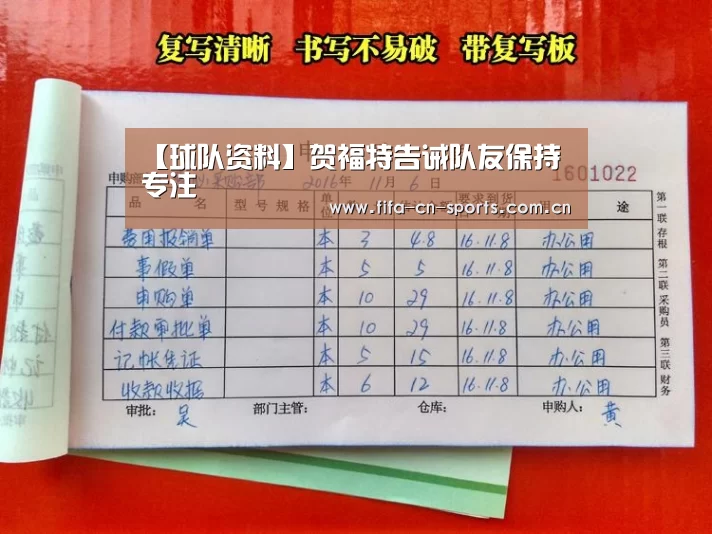 复写清晰 书写不易破 带复写板
【球队资料】贺福特告诫队友保持
专注
www.fifa-cn-sports.com.cn
申
1601022
申购部
采购部 2016年 11月 6日
品 名 型号规格 单位 要求到货 用途
费用报销单 本 3 4.8 16.11.8 办公用
事假单 本 5 5 16.11.8 办公用
申购单 本 10 29 16.11.8 办公用
付款审批单 本 10 29 16.11.8 办公用
记帐凭证 本 5 15 16.11.8 办公用
收款收据 本 6 12 16.11.8 办公用
审批: 吴 部门主管: 仓库: 申购人: 黄
第一联 存根 第二联 采购员 第三联 财务